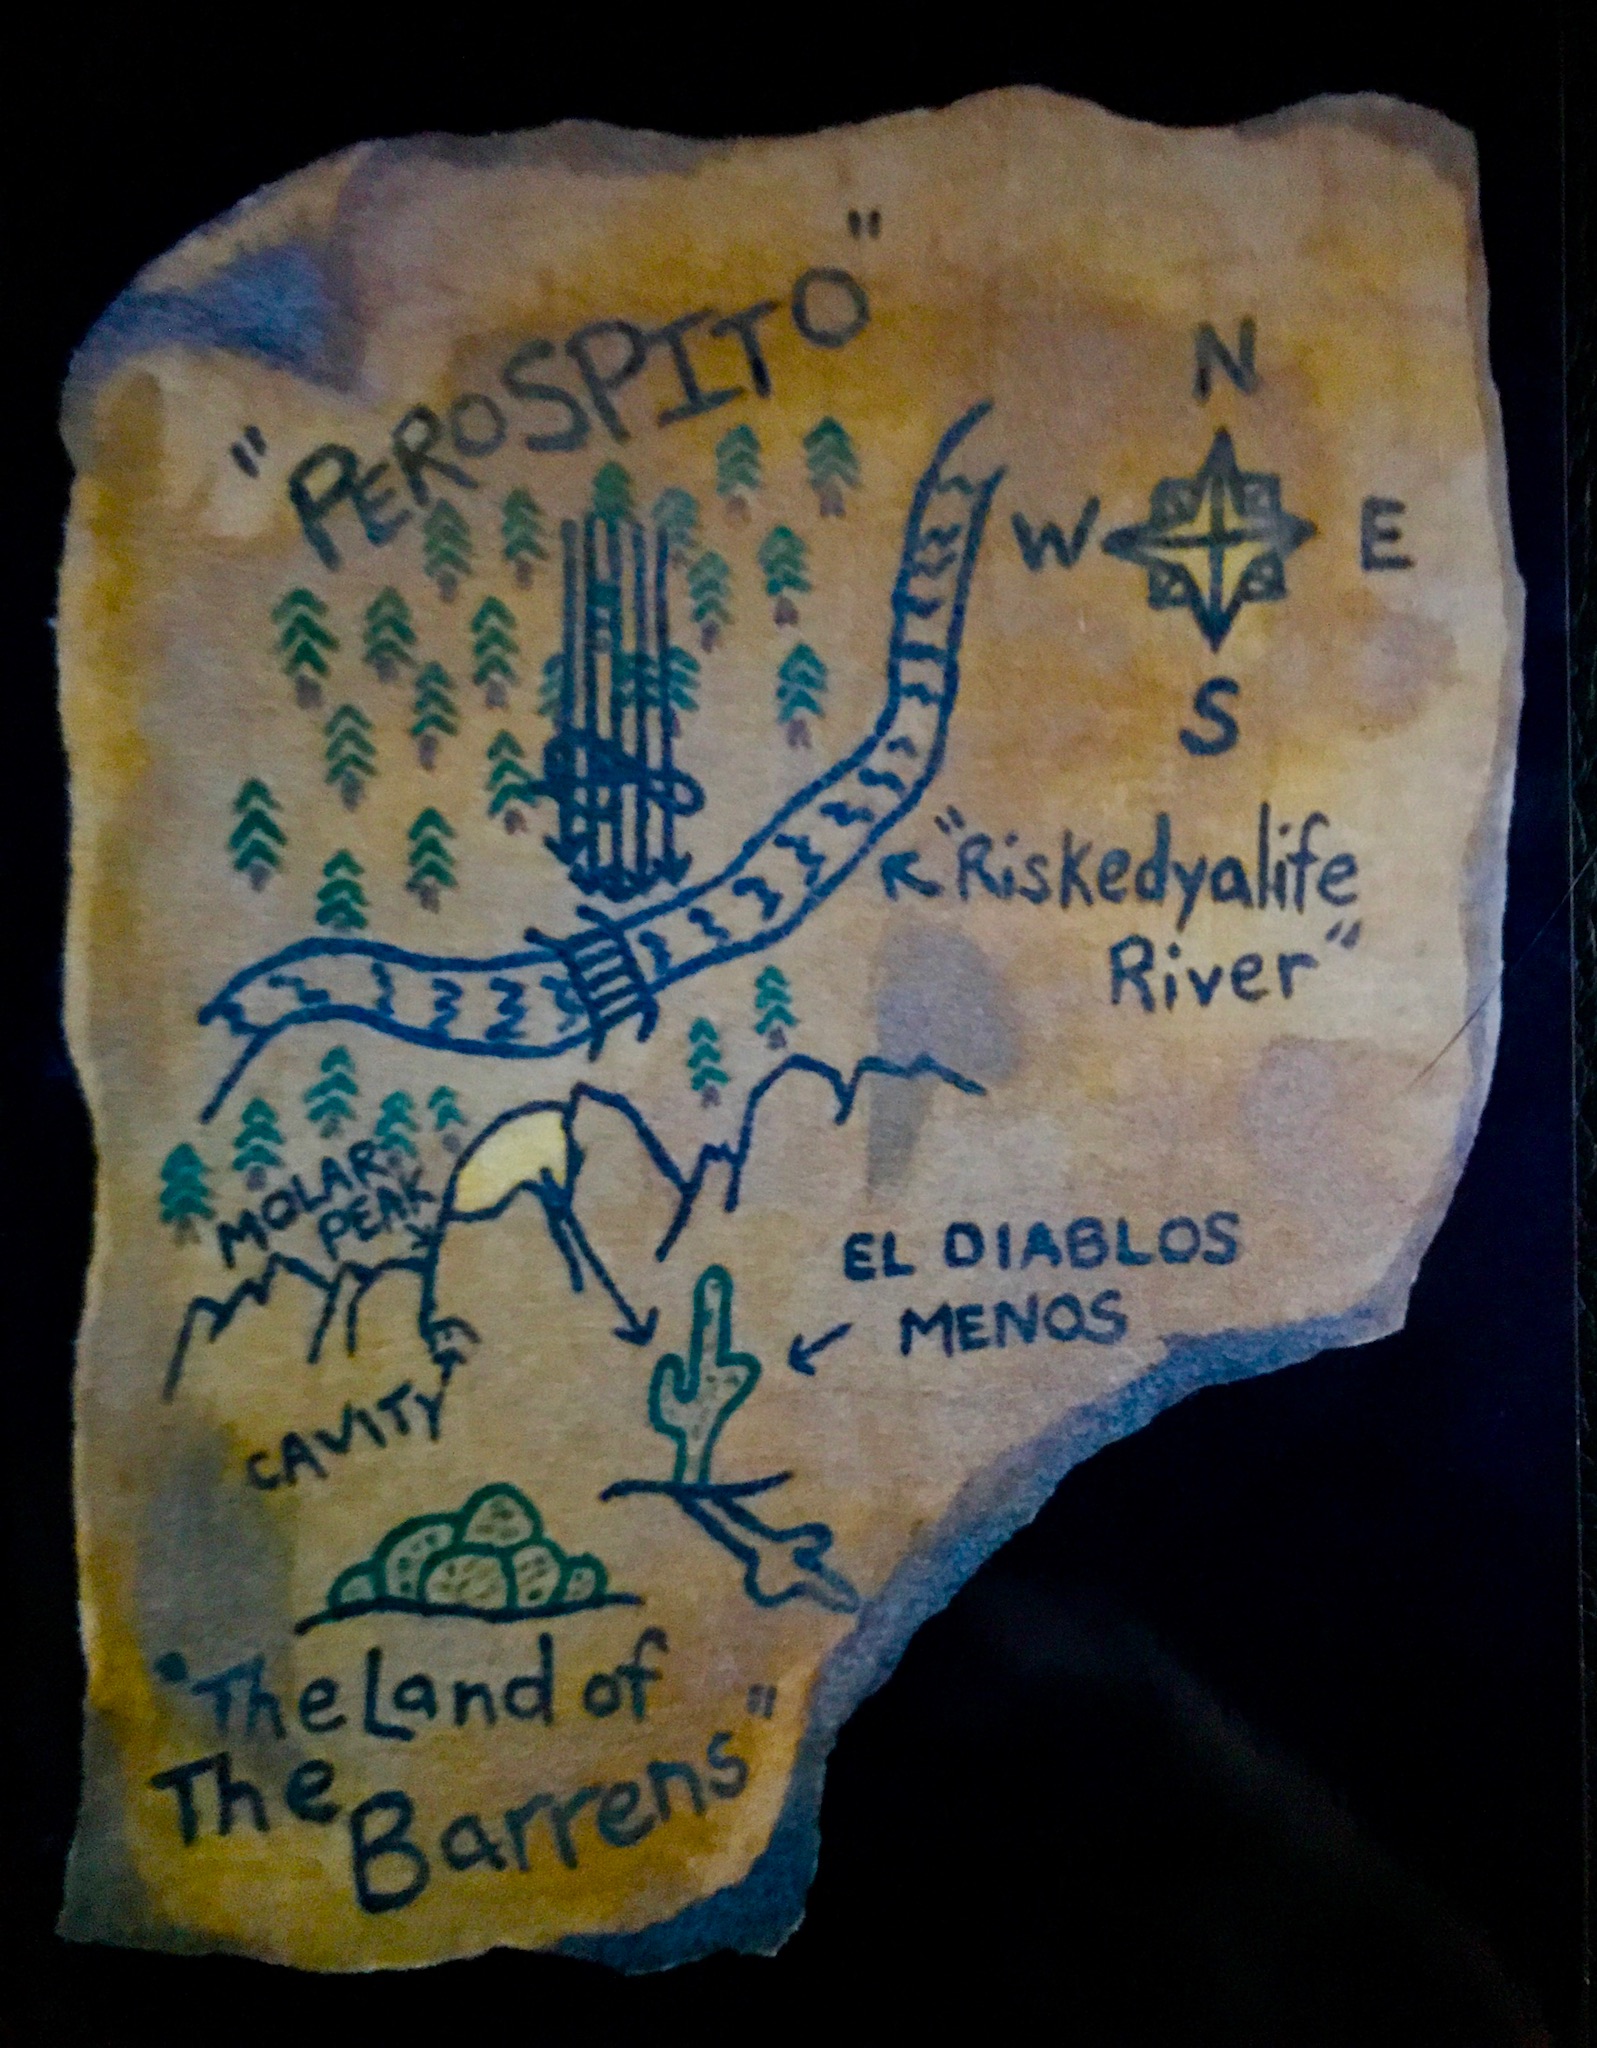 "PEROSPITO"
N
W E
S
"Riskedyalife
River"
MOLAR
PEAK
EL DIABLOS
MENOS
CAVITY
"The Land of
The Barrens"